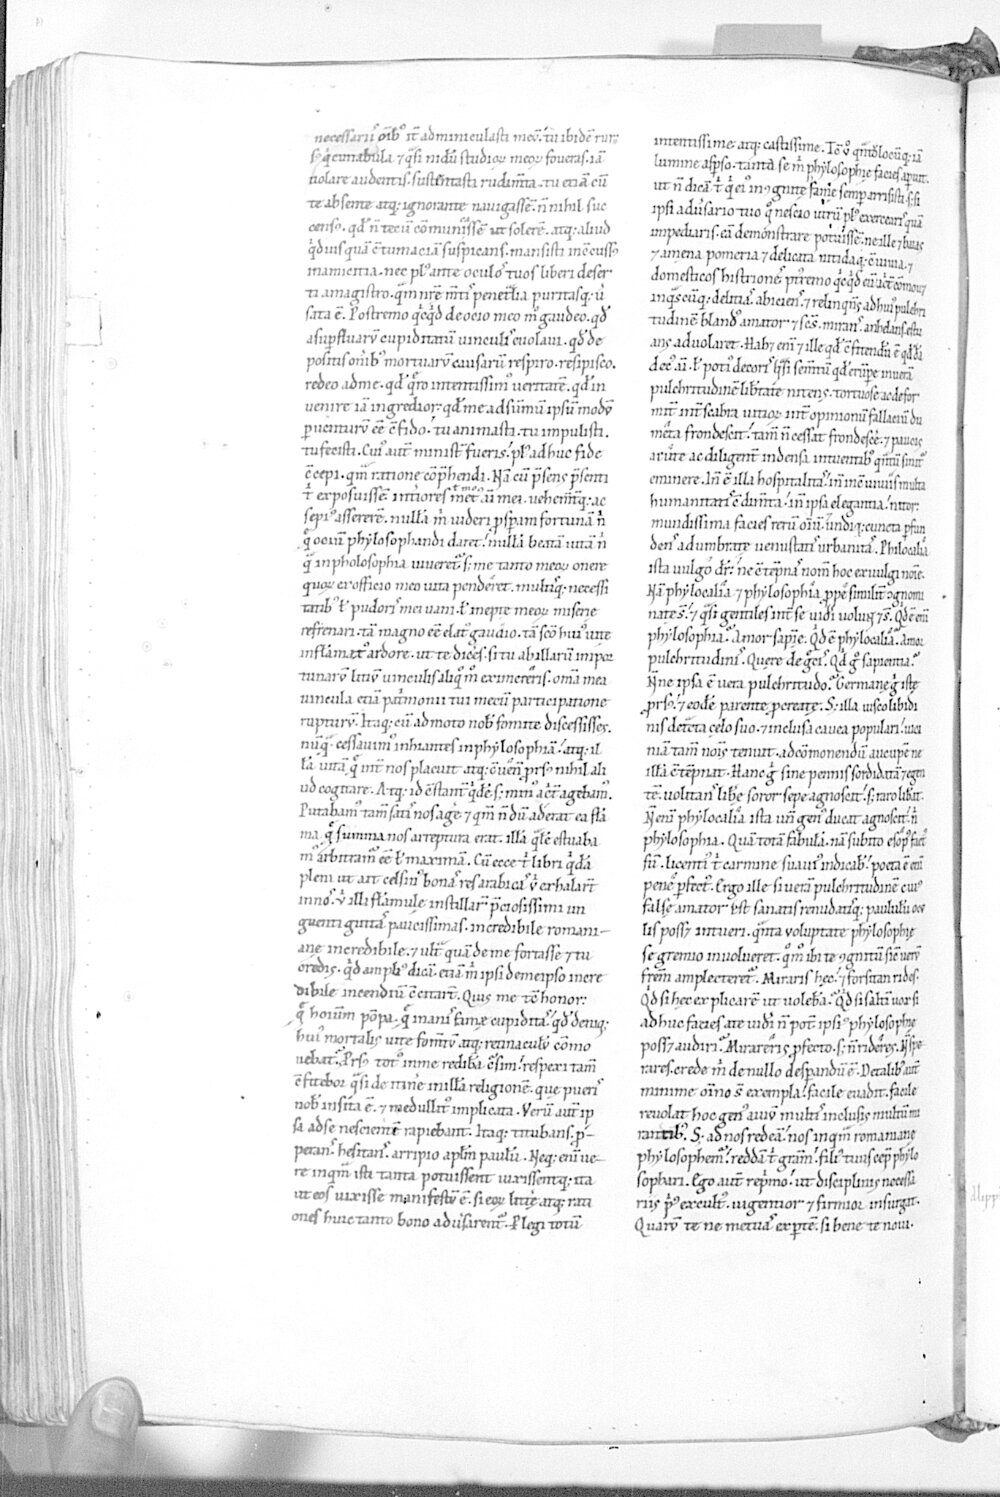 necessariũ oĩb᷒ it̃ adminiculasti meoꝝ̃. tu ibidẽ rur
s᷒ q̃i cunabula ⁊ q̃si nidũ studioꝝ meoꝝ foueras. iã
uolare audentis. sustentasti rudim̃ta. tu etiã cũ
te absente atq; ignorante nauigassẽ. ñ nihil suc
cens᷒. qđ ñ tecũ cõmunicassẽ ut solerẽ. atq; aliud
q̃duis quã c̃tumaciã suspicans. mansisti incõcuss᷒
in amicitia. nec pl᷒ ante oculos tuos liberi deser
ti a magistro. quam nr̃e m̃tis penetralia puritasq; ũ
sata ẽ. Postremo q̃cq̃d de ocio meo m̃ gaudeo. qđ
a sup̃fluarũ cupiditatũ uinculis euolaui. qđ de
positis onib᷒ mortuarũ curarũ respiro. resipisco.
redeo ad me. qđ q̃ro intentissim᷒ ueritatẽ. qđ in
uenire iã ingredior. qđ me ad sũmũ ipsũ modũ
puenturũ eẽ c̃fido. tu animasti. tu impulisti.
tu fecisti. Cui᷒ aut̃ minist̃ fueris. pl᷒ adhuc fide
c̃cepi. quam ratione cõp̃hendi. Nã cũ p̃sens p̃senti
t̃ exposuissẽ. int̃iores mot᷒ ai mei. uehemt̃q; ac
sepi᷒ assererẽ. nullã m̃ uideri prosperam fortunã ñ
q̃ ociũ phylosophandi daret. nullã beatã uitã ñ
q̃ in pholosophia uiueret̃. s; me tanto meoꝝ onere
quoꝝ ex officio meo uita penderet. multisq; necessi
tatib᷒ ł pudoris mei uani. ł inepte meoꝝ miserie
refrenari. tã magno eẽ elat᷒ gaudio. tã sc̃o hui᷒ uite
inflãmat᷒ ardore. ut te diceres. si tu ab illarũ impor
tunarũ litiũ uinculis aliq̃ m̃ eximereris. om̃a mea
uincula etiã pat̃monii tui mecũ participatione
rupturũ. Itaq; cũ admoto nob̃ fomite discessisses.
nũq̃ cessauim᷒ inhiantes in phylosophiã. atq; il
lã uitã q̃ int̃ nos placuit atq; c̃uenit. prs᷒ nihil ali
ud cogitare. Atq; id c̃stant̃ q̃dẽ. s; min᷒ acrit̃ agebam.
Putabam᷒ tam̃ sati nos agere. ⁊ qm̃ ñ dũ aderat ea flã
ma. q̃ summa nos arreptura erat. illã q̃ lẽte estuaba
m᷒ arbitram̃ eẽ ł maximã. Cũ ecce t̃ libri q̃dã
pleni ut ait celsin᷒ bonas res arabicas ũ exhalar̃t
in nos. ũ illi flãmule instillar̃t p̃ciosissimi un
guenti guttas paucissimas. incredibile romani
ane incredibile. ⁊ ult̃ quã de me fortasse ⁊ tu
credis. q̃d ampli᷒ dicã. etiã m̃ ipsi de me ipso incre
dibile incendiũ c̃citar̃t. Quis me tc̃ honor.
q̃ hoiũm põpa. q̃ inanis fame cupiditas. q̃d deniq;
hui᷒ mortalis uite fomt̃ũ atq; retinaculũ cõmo
uebat̃. Prs᷒ tot᷒ in me redibã c̃sim. respexi tam̃
c̃fitebor q̃si de itinere in illã religionẽ. que pueris
nob̃ insita ẽ. ⁊ medullit᷒ implicata. Verũ aut̃ ip
sa ad se nescientẽ rapiebant. Itaq; titubans. p̃
perans. hesitans. arripio aplm̃ paulũ. Neq; enĩ ue
re inquam isti tanta potuissent. uixissentq; ita
ut eos uixisse manifestũ ẽ. si eoꝝ lit̃e atq; rati
ones huic tanto bono aduersarent̃. Plegi totũ
intentissime atq; castissime. Tc̃ ũ quantulocũq; iã
lumine aspso. tanta se m̃ phylosophie facies apuit.
ut ñ dicã t̃ q̃ ei᷒ incognite fame semp arsisti. s; si
ipsi aduersario tuo q̃ nescio utrũ pl᷒ exercearis quã
impediaris. eã demõnstrare potuissẽ. ne ille ⁊ baias
⁊ amena pomeria ⁊ delicata nitidaq; c̃uiuia. ⁊
domesticos histriones. postremo q̃cq̃d eũ acrit̃ cõmouet
in quascũq; delitias. abiciens. ⁊ relinquẽs ad hui᷒ pulchri
tudinẽ bland᷒ amator ⁊ sc̃s. mirans. anhelans. estu
ans aduolaret. Habꝫ enĩ ⁊ ille qđ c̃fitendũ ẽ q̃ddã
dec᷒ ai. ł poti᷒ decoris q̃si sementũ qđ erũpe in uerã
pulchritudinẽ libertate nitens. tortuose ac defor
mit̃ int̃ scabra uitioꝝ int̃ opinionũ fallaciũ du
meta frondescit. tam̃ ñ cessat frondescẽ. ⁊ paucis
acute ac diligent̃ in densa intuentib᷒ quantũ sinit᷒
eminere. Inde ẽ illa hospitalitas. inde in c̃uiuiis multa
humanitatis c̃dim̃ta. inde ipsa elegantia. nitor.
mundissima facies rerũ oĩũ. undiq; cuncta pfun
dens adumbrate uenustatis urbanitas. Philocalia
ista uulgo dr̃. ne c̃tẽpnas nom̃ hoc ex uulgi noĩe.
Nã phylocalia ⁊ phylosophia. ppe similit̃ cognomi
nate st̃. ⁊ q̃si gentiles int̃ se uideri uolũt ⁊ st̃. Q̃d ẽ enĩ
phylosophia. Amor sapiẽtie. Q̃d ẽ phylocalia. Amor
pulchritudinis. Quere de grecis. Q̃d ĝ sapientia.
Nonne ipsa ẽ uera pulchritudo. Germane ĝ iste
prs᷒. ⁊ eodẽ parente pcreate. S; illa uisco libidi
nis detcta celo suo. ⁊ inclusa cauea populari. uici
niã tam̃ nois tenuit. ad cõmonendũ aucupẽ ne
illã c̃tẽpnat. Hanc ĝ sine pennis sordidatã ⁊ egen
tẽ. uolitans libere soror sepe agnoscit. s; raro libat.
Nec enĩ phylocalia ista un̄ gen᷒ ducat agnoscit. ñ
phylosophia. Quã totã fabulã. nã subito esop᷒ fact᷒
sũ. licenti᷒ t̃ carmine suaui᷒ indicabit. poeta ẽ enĩ
pene pfect᷒. Ergo ille si uerã pulchritudinẽ cui᷒
false amator ẽst sanatis renudatisq; paululũ ocu
lis possꝫ intueri. q̃nta uoluptate phylosophie
se gremio inuolueret. q̃m᷒ ibi te cognitũ sic uerũ
frem̃ amplecteret̃. Miraris hec. ⁊ forsitan rides.
Q̃d si hec explicarẽ ut uolebã. Q̃d si saltũ uox si
adhuc facies a te uideri ñ pot̃. ipsi᷒ phylosophie
possꝫ audiri. Mirareris pfecto. s; ñ rideres. Ñ dispe
rares. crede m̃ de nullo despandũ ẽ. De talib᷒ aut̃
minime oĩno st̃ exempla. facile euadit. facile
reuolat hoc gen᷒ auiũ multis inclusis multũ mi
rantib᷒. S; ad nos redeã. nos inquam romaniane
phylosophem᷒. reddã t̃ gram̃. fili᷒ tuus cepit phylo
sophari. Ego aut̃ rep̃mo. ut disciplinis necessa
riis p̃us excult᷒. uigentior ⁊ firmior insurgat.
Quarũ te ne metuas expertẽ. si bene te noui.